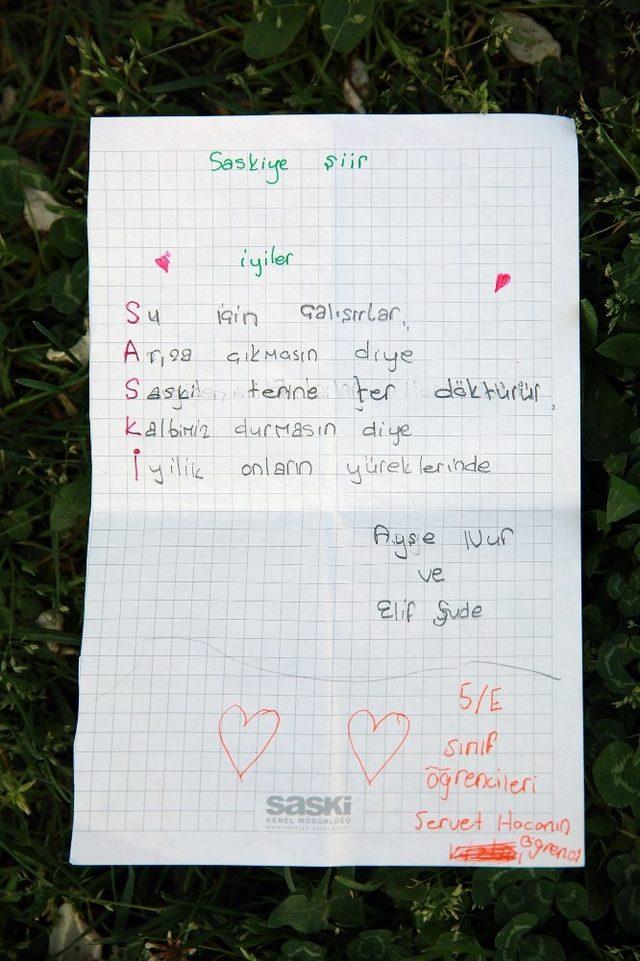 Saskiye şiir
iyiler
Su için çalışırlar,
Arıza çıkmasın diye
Saski terine ter döktürür,
Kalbimiz durmasın diye
İyilik onların yüreklerinde
Ayşe Nur
ve
Elif Şude
5/E
sınıf
öğrencileri
Servet Hocanın
öğrenci
saski
GENEL MÜDÜRLÜĞÜ